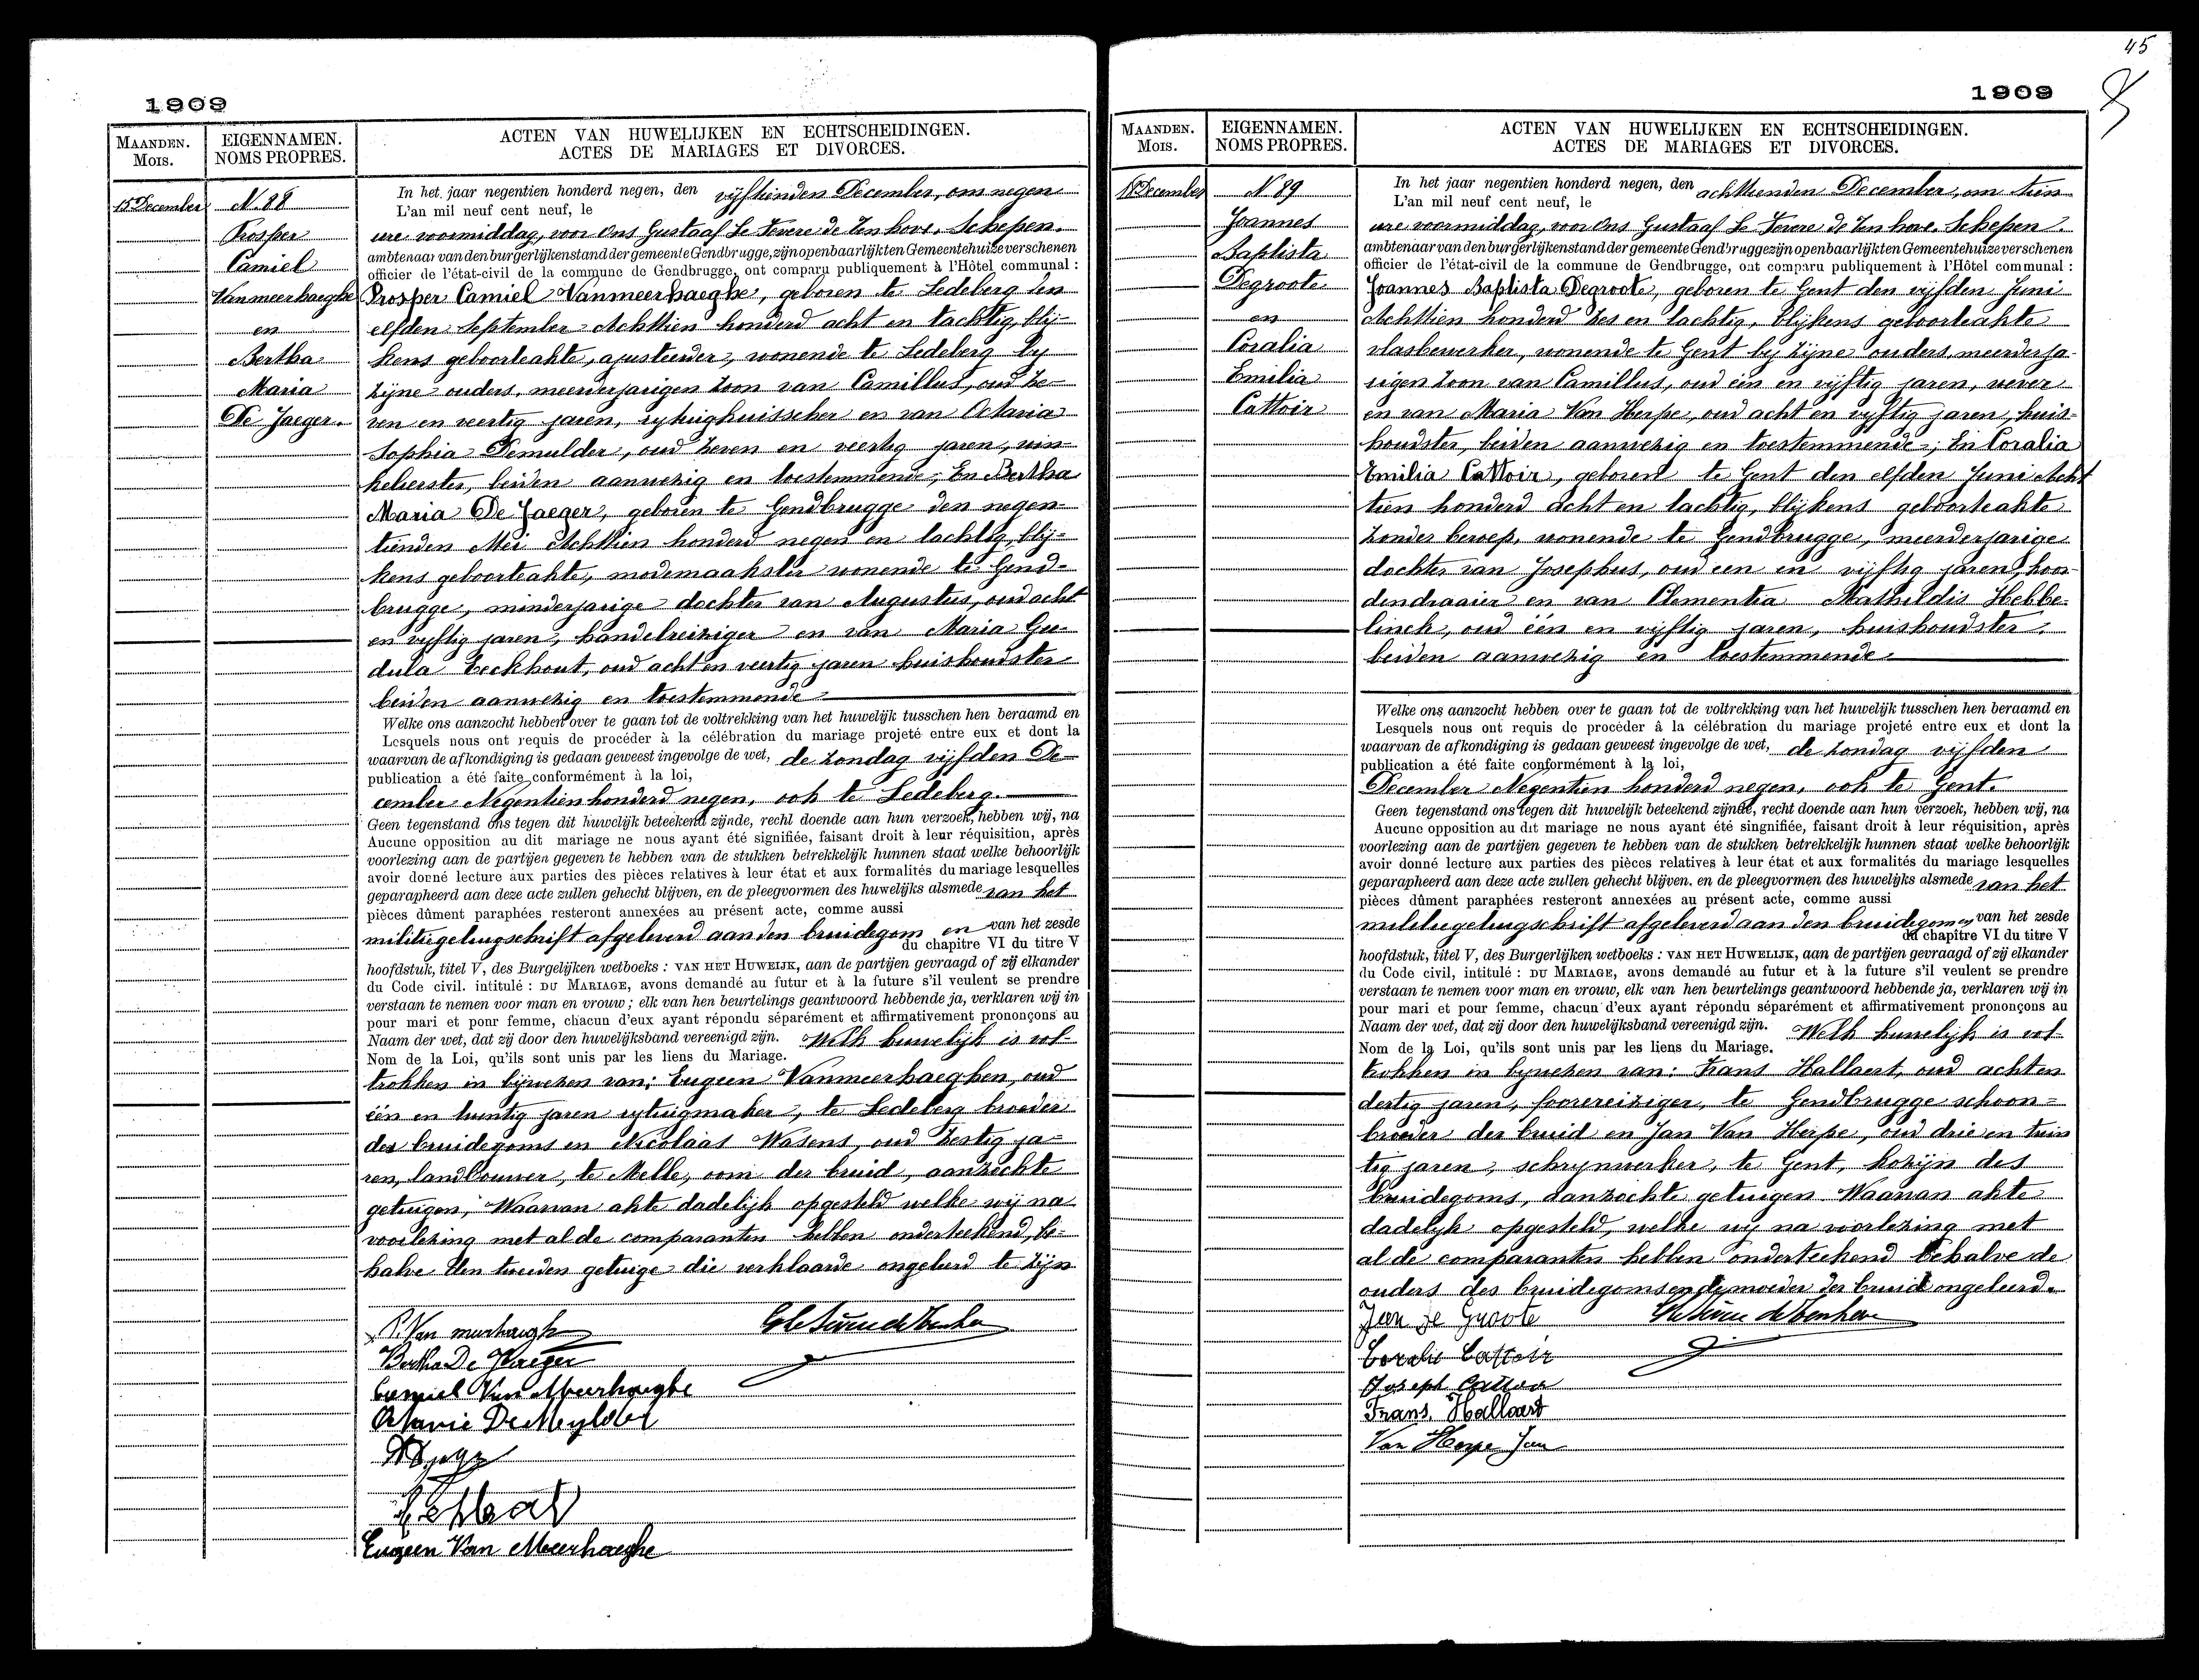 45
1909
MAANDEN.
Mois.
EIGENNAMEN.
NOMS PROPRES.
ACTEN VAN HUWELIJKEN EN ECHTSCHEIDINGEN.
ACTES DE MARIAGES ET DIVORCES.
15 December
N. 88
Prosper
Camiel
Vanmeerhaeghe
en
Bertha
Maria
De Jaeger.
In het jaar negentien honderd negen, den vijftienden December, om negen
L'an mil neuf cent neuf, le
ure voormiddag, voor Ons Gustaaf Le Fevere de Tenhove. Schepen.
ambtenaar van den burgerlijken stand der gemeente Gendbrugge, zijn openbaarlijk ten Gemeentehuize verschenen
officier de l'état-civil de la commune de Gendbrugge, ont comparu publiquement à l'Hôtel communal :
Prosper Camiel Vanmeerhaeghe, geboren te Ledeberg den
elfden September Achttien honderd acht en tachtig, blij-
kens geboorteakte, ajusteerder, wonende te Ledeberg by
zijne ouders, meerderjarigen zoon van Camillus, oud ze-
ven en veertig jaren, rytuighuisscher en van Octavia
Sophia Demulder, oud zeven en veertig jaren, win-
kelierster, beiden aanwezig en toestemmende; En Bertha
Maria De Jaeger, geboren te Gendbrugge den negen-
tienden Mei Achttien honderd negen en tachtig, blij-
kens geboorteakte, modemaakster wonende te Gend-
brugge, minderjarige dochter van Augustus, oud acht
en vyftig jaren, handelreiziger en van Maria Gu-
dula Eeckhout, oud acht en veertig jaren huishoudster
beiden aanwezig en toestemmende
Welke ons aanzocht hebben over te gaan tot de voltrekking van het huwelijk tusschen hen beraamd en
Lesquels nous ont requis de procéder à la célébration du mariage projeté entre eux et dont la
waarvan de afkondiging is gedaan geweest ingevolge de wet, de zondag vijfden De-
publication a été faite conformément à la loi,
cember Negentien honderd negen, ook te Ledeberg.
Geen tegenstand ons tegen dit huwelijk beteekend zijnde, recht doende aan hun verzoek, hebben wij, na
Aucune opposition au dit mariage ne nous ayant été signifiée, faisant droit à leur réquisition, après
voorlezing aan de partijen gegeven te hebben van de stukken betrekkelijk hunnen staat welke behoorlijk
avoir donné lecture aux parties des pièces relatives à leur état et aux formalités du mariage lesquelles
geparapheerd aan deze acte zullen gehecht blijven, en de pleegvormen des huwelijks alsmede van het
pièces dûment paraphées resteront annexées au présent acte, comme aussi
militiegetuigschrift afgeleverd aan den bruidegom en van het zesde
du chapitre VI du titre V
hoofdstuk, titel V, des Burgelijken wetboeks : VAN HET HUWEIJK, aan de partijen gevraagd of zij elkander
du Code civil. intitulé : DU MARIAGE, avons demandé au futur et à la future s'il veulent se prendre
verstaan te nemen voor man en vrouw ; elk van hen beurtelings geantwoord hebbende ja, verklaren wij in
pour mari et pour femme, chacun d'eux ayant répondu séparément et affirmativement prononçons au
Naam der wet, dat zij door den huwelijksband vereenigd zijn. Welk huwelijk is vol-
Nom de la Loi, qu'ils sont unis par les liens du Mariage.
trokken in bijwezen van: Eugeen Vanmeerhaeghen, oud
één en twintig jaren rytuigmaker, te Ledeberg broeder
des bruidegoms en Nicolaas Wasens, oud zestig ja-
ren, landbouwer, te Melle, oom der bruid, aanzochte
getuigen, Waarvan akte dadelijk opgesteld welke wij na
voorlezing met al de comparanten hebben onderteekend, be-
halve den tweeden getuige die verklaarde ongeleerd te zijn
P. Van meerhaeghe
Bertha De Jaeger
Camiel Van Meerhaeghe
Octavie DeMeylder
Eugeen Van Meerhaeghe
1909
MAANDEN.
Mois.
EIGENNAMEN.
NOMS PROPRES.
ACTEN VAN HUWELIJKEN EN ECHTSCHEIDINGEN.
ACTES DE MARIAGES ET DIVORCES.
18 December
N 89
Joannes
Baptista
Degroote
en
Coralia
Emilia
Cattoir
In het jaar negentien honderd negen, den achttienden December, om tien
L'an mil neuf cent neuf, le
ure voormiddag, voor Ons Gustaaf Le Fevere de Tenhove. Schepen.
ambtenaar van den burgerlijken stand der gemeente Gendbrugge zijn openbaarlijk ten Gemeentehuize verschenen
officier de l'état-civil de la commune de Gendbrugge, ont comparu publiquement à l'Hôtel communal :
Joannes Baptista Degroote, geboren te Gent den vijfden Juni
Achttien honderd zes en tachtig, blijkens geboorteakte
vlasbewerker, wonende te Gent bij zijne ouders, meerderja-
rigen zoon van Camillus, oud één en vijftig jaren, wever
en van Maria Van Herpe, oud acht en vyftig jaren, huis-
houdster, beiden aanwezig en toestemmende; En Coralia
Emilia Cattoir, geboren te Gent den elfden Juni Acht
tien honderd acht en tachtig, blijkens geboorteakte
zonder beroep, wonende te Gendbrugge, meerderjarige
dochter van Josephus, oud een en vijftig jaren, koor-
dendraaier en van Clementia Mathildis Hebbe-
linck, oud één en vijftig jaren, huishoudster.
beiden aanwezig en toestemmende
Welke ons aanzocht hebben over te gaan tot de voltrekking van het huwelijk tusschen hen beraamd en
Lesquels nous ont requis de procéder â la célébration du mariage projeté entre eux et dont la
waarvan de afkondiging is gedaan geweest ingevolge de wet, de zondag vijfden
publication a été faite conformément à la loi,
December Negentien honderd negen, ook te Gent.
Geen tegenstand ons tegen dit huwelijk beteekend zijnde, recht doende aan hun verzoek, hebben wij, na
Aucune opposition au dit mariage ne nous ayant été singnifiée, faisant droit à leur réquisition, après
voorlezing aan de partijen gegeven te hebben van de stukken betrekkelijk hunnen staat welke behoorlijk
avoir donné lecture aux parties des pièces relatives à leur état et aux formalités du mariage lesquelles
geparapheerd aan deze acte zullen gehecht blijven. en de pleegvormen des huwelijks alsmede van het
pièces dûment paraphées resteront annexées au présent acte, comme aussi
militiegetuigschrift afgeleverd aan den bruidegom en van het zesde
du chapitre VI du titre V
hoofdstuk, titel V, des Burgerlijken wetboeks : VAN HET HUWELIJK, aan de partijen gevraagd of zij elkander
du Code civil, intitulé : DU MARIAGE, avons demandé au futur et à la future s'il veulent se prendre
verstaan te nemen voor man en vrouw, elk van hen beurtelings geantwoord hebbende ja, verklaren wij in
pour mari et pour femme, chacun d'eux ayant répondu séparément et affirmativement prononçons au
Naam der wet, dat zij door den huwelijksband vereenigd zijn. Welk huwelijk is vol-
Nom de la Loi, qu'ils sont unis par les liens du Mariage.
trokken in bywezen van: Frans Hallaert, oud acht en
dertig jaren, foorereiziger, te Gendbrugge schoon-
broeder der bruid en Jan Van Herpe, oud drie en twin
tig jaren, schrynwerker, te Gent, kozijn des
bruidegoms, aanzochte getuigen. Waarvan akte
dadelijk opgesteld, welke wy na voorlezing met
al de comparanten hebben onderteekend behalve de
ouders des bruidegoms en de moeder der bruid ongeleerd.
Jean De Groote
Coralie Cattoir
Joseph Cattoir
Frans. Hallaert
Van Herpe Jan